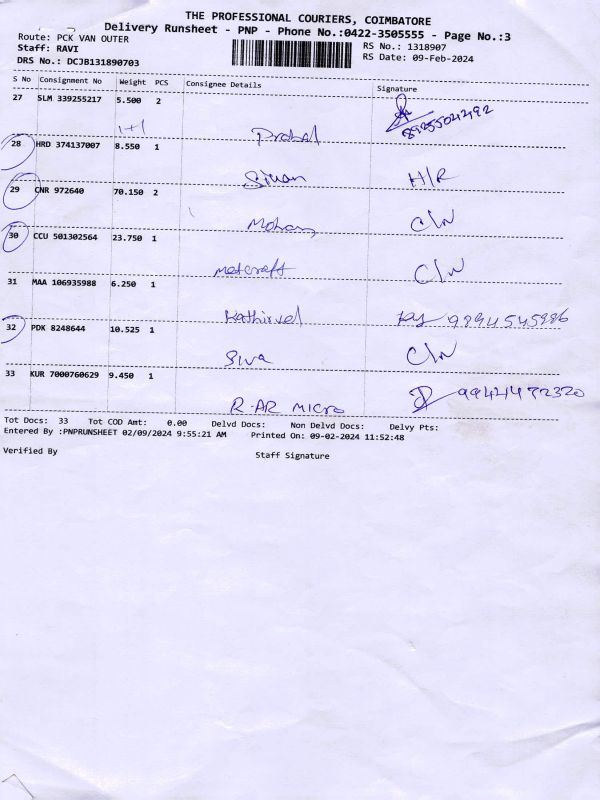 THE PROFESSIONAL COURIERS, COIMBATORE
Delivery Runsheet - PNP - Phone No.:0422-3505555 - Page No.:3
Route: PCK VAN OUTER
RS No.: 1318907
Staff: RAVI
RS Date: 09-Feb-2024
DRS No.: DCJB131890703
S No Consignment No Weight PCS Consignee Details Signature
27 SLM 339255217 5.500 2
1+1 Prabal
28 HRD 374137007 8.550 1
Sivan H/R
29 CNR 972640 70.150 2
Mohan C/N
30 CCU 501302564 23.750 1
metcraft C/N
31 MAA 106935988 6.250 1
Kathirvel 9994545986
32 PDK 8248644 10.525 1
Siva C/N
33 KUR 7000760629 9.450 1
R.AR MICRO 9944472320
Tot Docs: 33 Tot COD Amt: 0.00 Delvd Docs: Non Delvd Docs: Delvy Pts:
Entered By :PNPRUNSHEET 02/09/2024 9:55:21 AM Printed On: 09-02-2024 11:52:48
Verified By Staff Signature